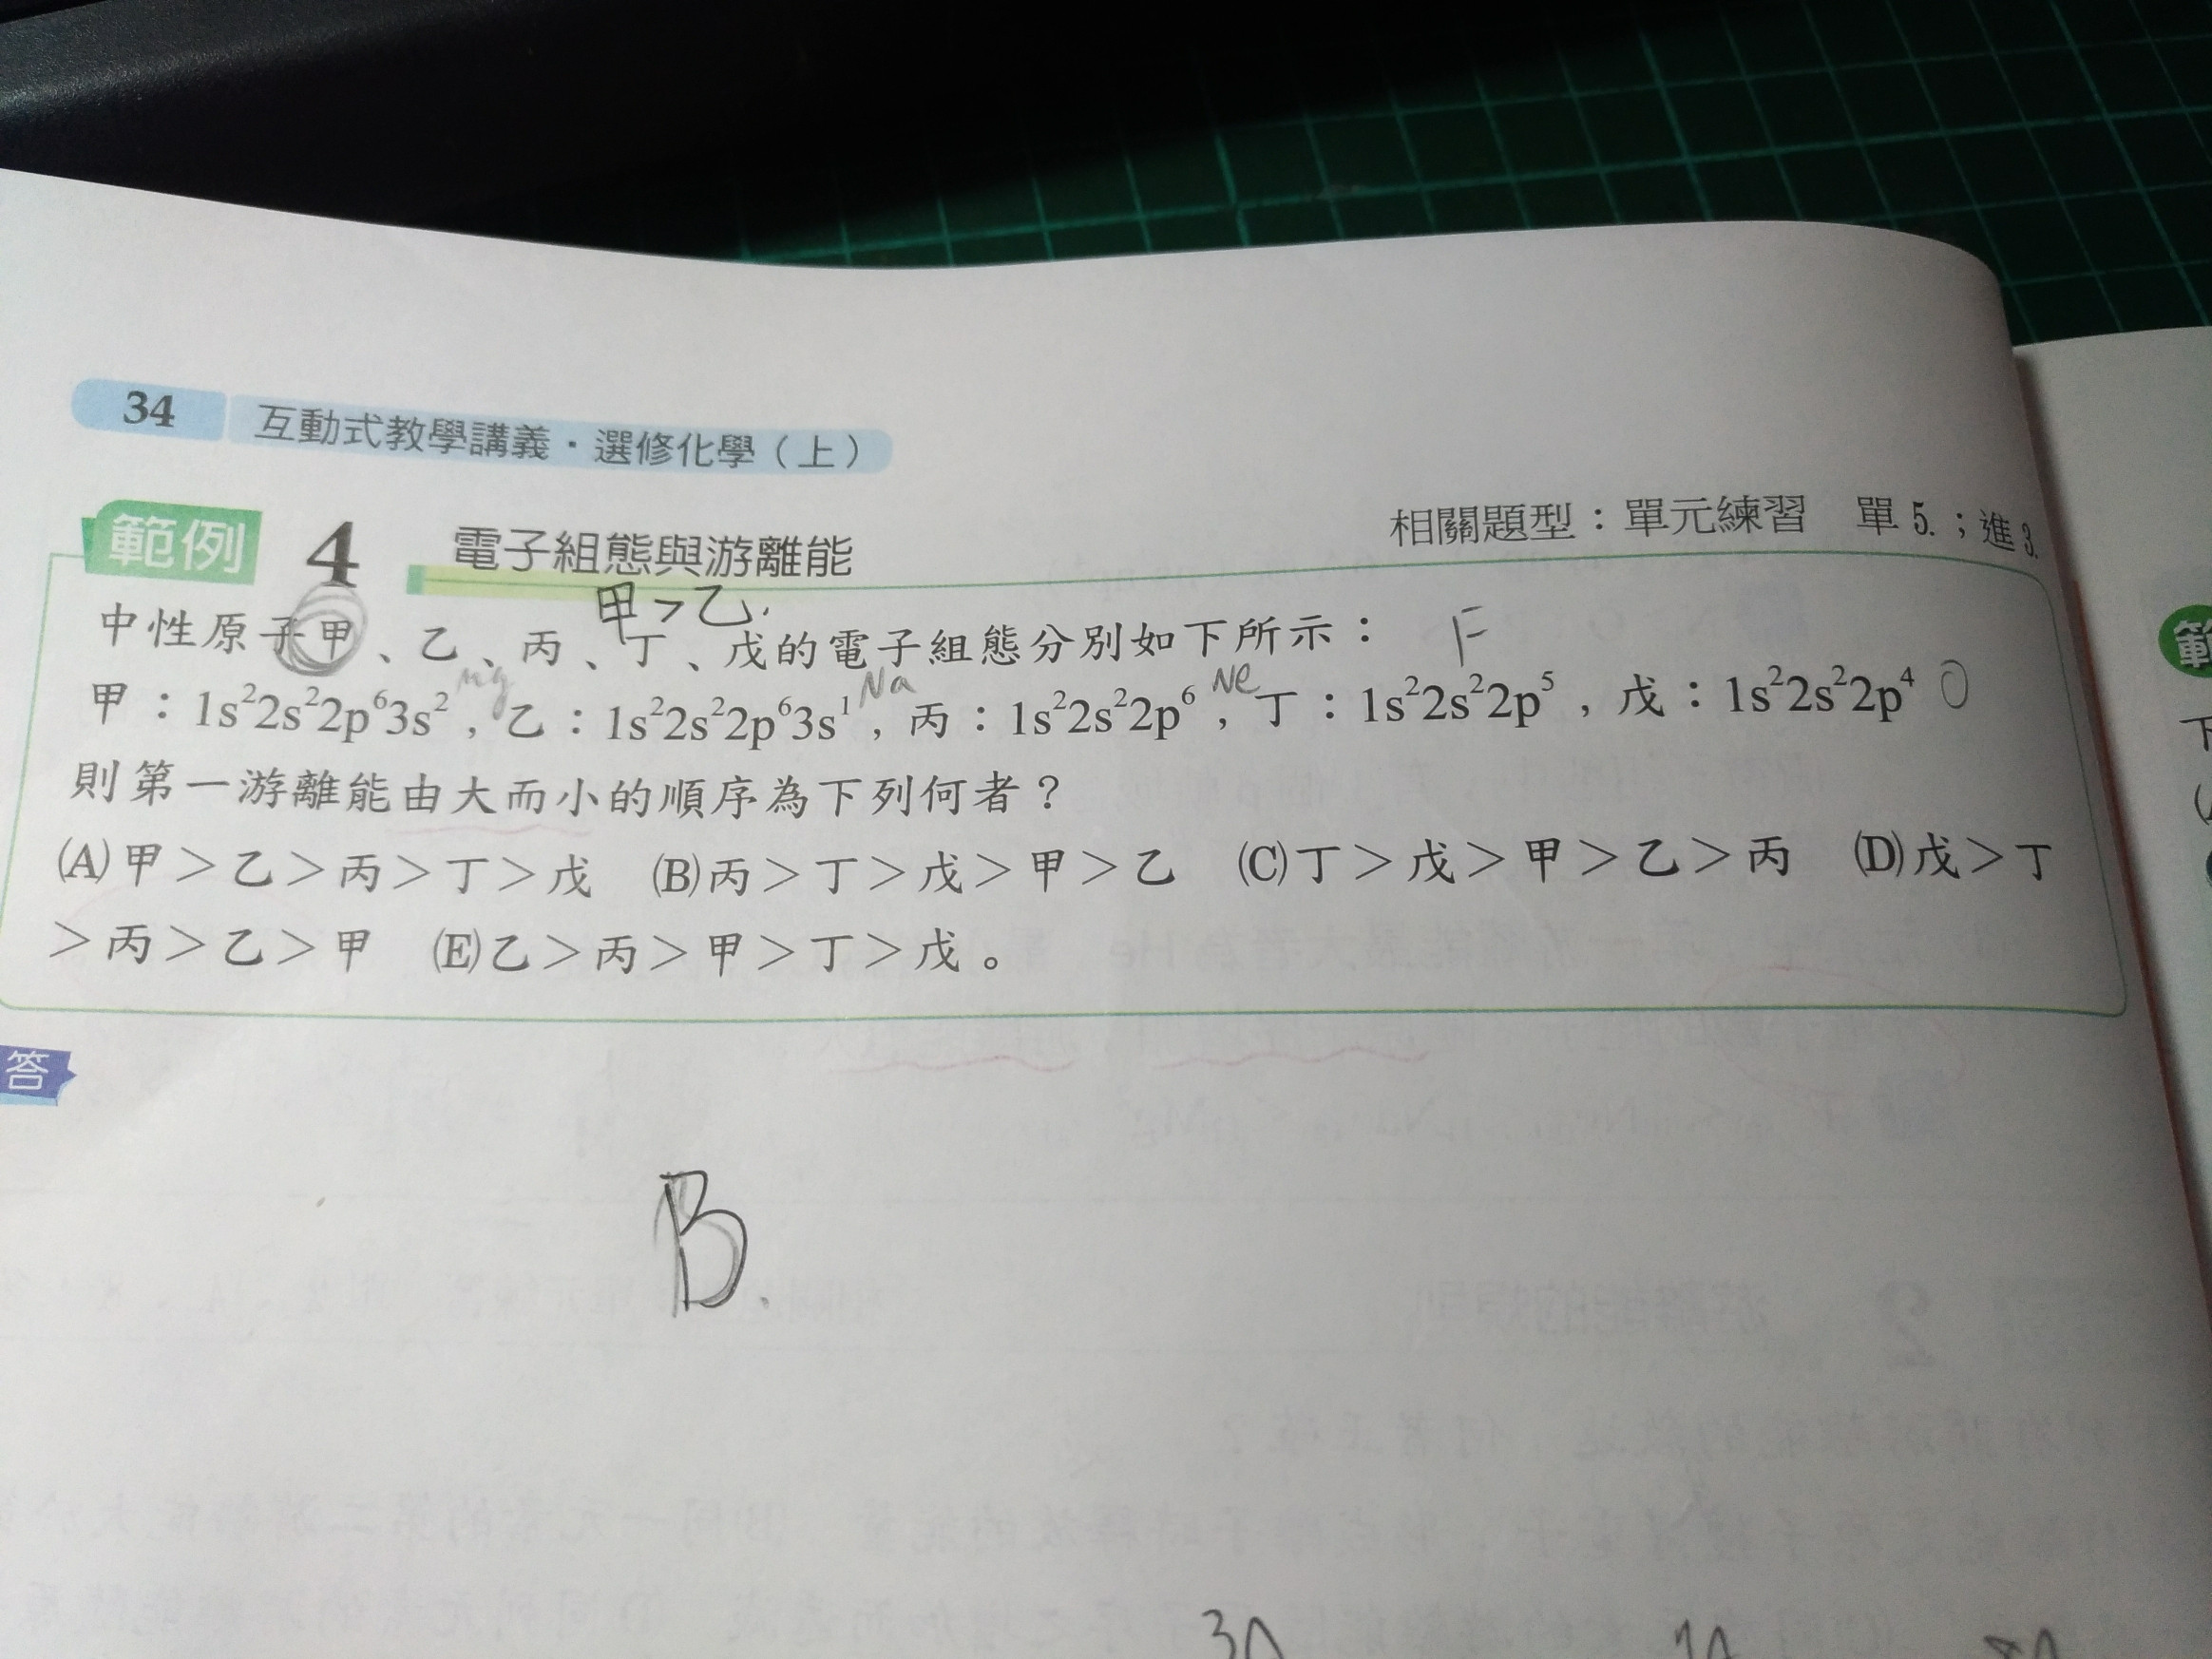 34 互動式教學講義・選修化學（上）
範例 4 電子組態與游離能
相關題型：單元練習 單5.；進3.
甲>乙.
中性原子甲、乙、丙、丁、戊的電子組態分別如下所示：
F
Mg Na Ne
甲：1s²2s²2p⁶3s²，乙：1s²2s²2p⁶3s¹，丙：1s²2s²2p⁶，丁：1s²2s²2p⁵，戊：1s²2s²2p⁴ O
則第一游離能由大而小的順序為下列何者？
(A)甲＞乙＞丙＞丁＞戊 (B)丙＞丁＞戊＞甲＞乙 (C)丁＞戊＞甲＞乙＞丙 (D)戊＞丁
＞丙＞乙＞甲 (E)乙＞丙＞甲＞丁＞戊。
答
B.
範
下